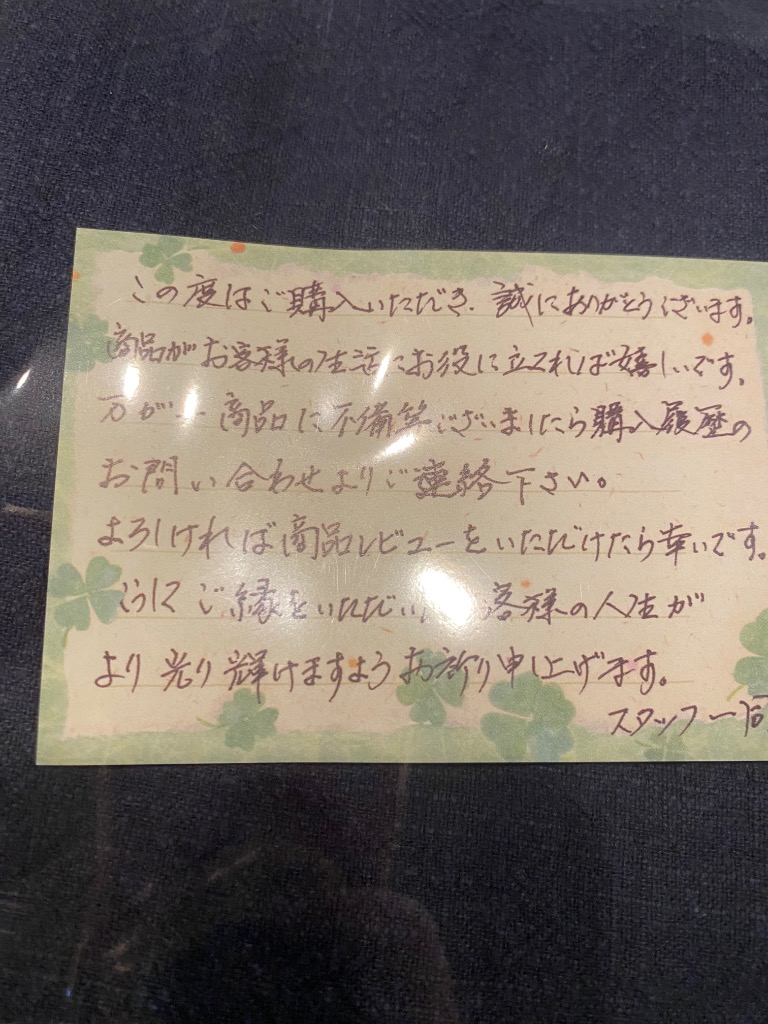 この度はご購入いただき、誠にありがとうございます。
商品がお客様の生活にお役に立てれば嬉しいです。
万が一商品に不備等ございましたら購入履歴の
お問い合わせよりご連絡下さい。
よろしければ商品レビューをいただけたら幸いです。
うしてご縁をいただい 客様の人生が
より光り輝けますようお祈り申し上げます。
スタッフ一同